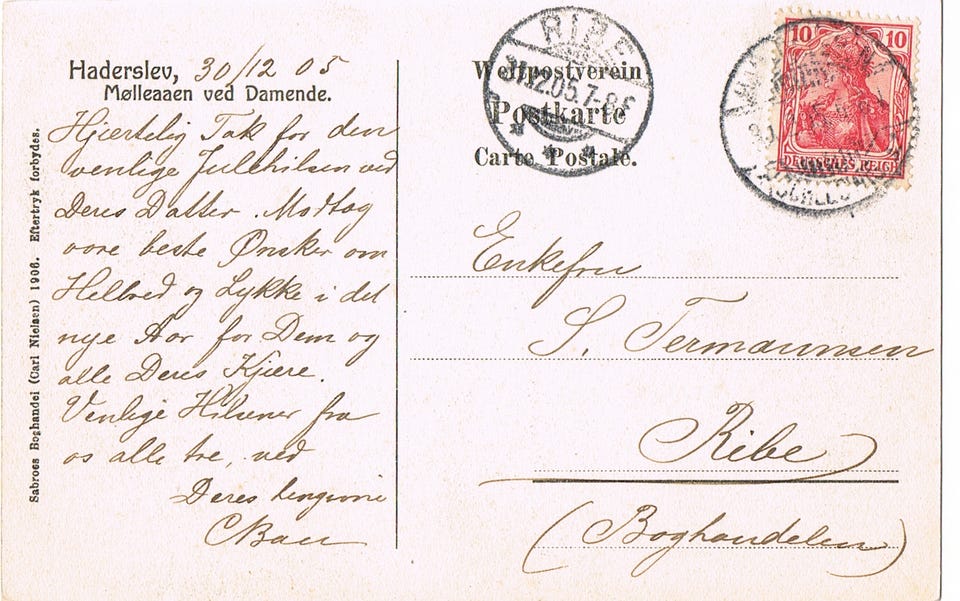 Haderslev, 30/12 05
Mølleaaen ved Damende.
Hjærtelig Tak for den
venlige Julehilsen ved
Deres Datter. Modtag
vore beste Ønsker om
Helbred og Lykke i det
nye Aar for Dem og
alle Deres Kjære.
Venlige Hilsener fra
os alle tre, ved
Deres hengivne
Sabroes Boghandel (Carl Nielsen) 1906. Eftertryk forbydes.
RIBE
31.12.05.7-8 F
Weltpostverein
Postkarte
Carte Postale.
10 10
DEUTSCHES REICH
Enkefru
S. Termansen
Ribe
(Boghandelen)